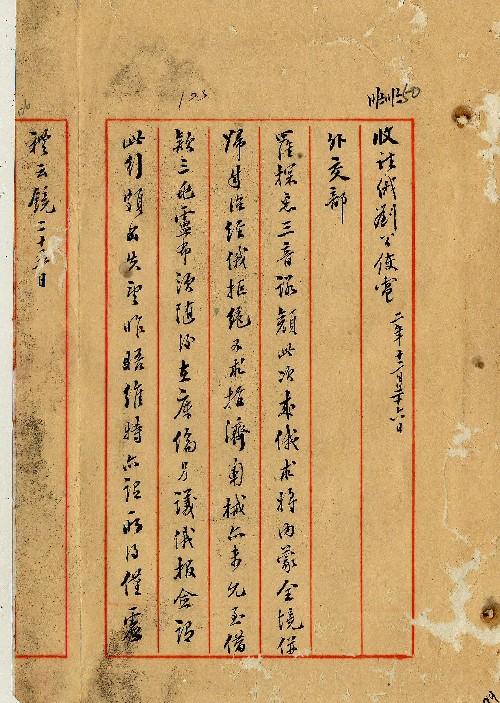 收駐俄劉公使電 二年十二月廿六日
外交部
羅探悉三音諾顏此次來俄求將內蒙全境併
歸自治經俄拒絕又求接濟軍械亦未允至借
款三兆盧布須隨後在庫倫另議俄報僉謂
此行頗為失望昨晤維特亦謂所得僅虛
禮云鏡二十日
123